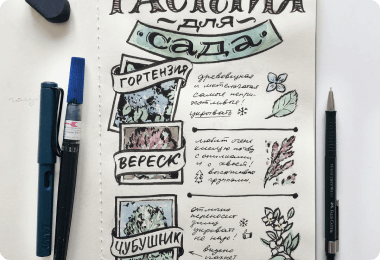 РАСТЕНИЯ
для
сада
ГОРТЕНЗИЯ
древовидная
и метельчатая
самые непри-
хотливые!
укрывать
ВЕРЕСК
любит очень
кислую почву
с опилками
и с хвоей!
высаживаю
группами.
ЧУБУШНИК
отлично
переносит
зиму
укрывать
не надо!
вкусно
пахнет